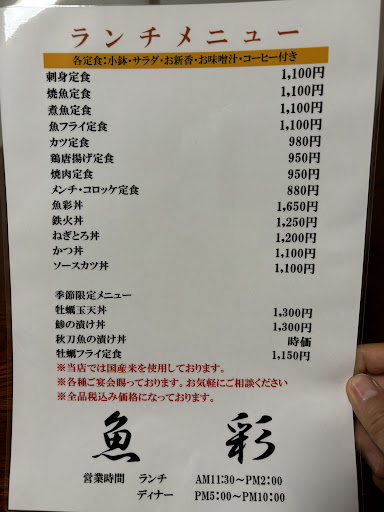 ランチメニュー
各定食:小鉢・サラダ・お新香・お味噌汁・コーヒー付き
刺身定食 1,100円
焼魚定食 1,100円
煮魚定食 1,100円
魚フライ定食 1,100円
カツ定食 980円
鶏唐揚げ定食 950円
焼肉定食 950円
メンチ・コロッケ定食 880円
魚彩丼 1,650円
鉄火丼 1,250円
ねぎとろ丼 1,200円
かつ丼 1,100円
ソースカツ丼 1,100円
季節限定メニュー
牡蠣玉天丼 1,300円
鯵の漬け丼 1,300円
秋刀魚の漬け丼 時価
牡蠣フライ定食 1,150円
※当店では国産米を使用しております。
※各種ご宴会賜っております。お気軽にご相談ください
※全品税込み価格になっております。
魚 彩
営業時間 ランチ AM11:30～PM2:00
ディナー PM5:00～PM10:00